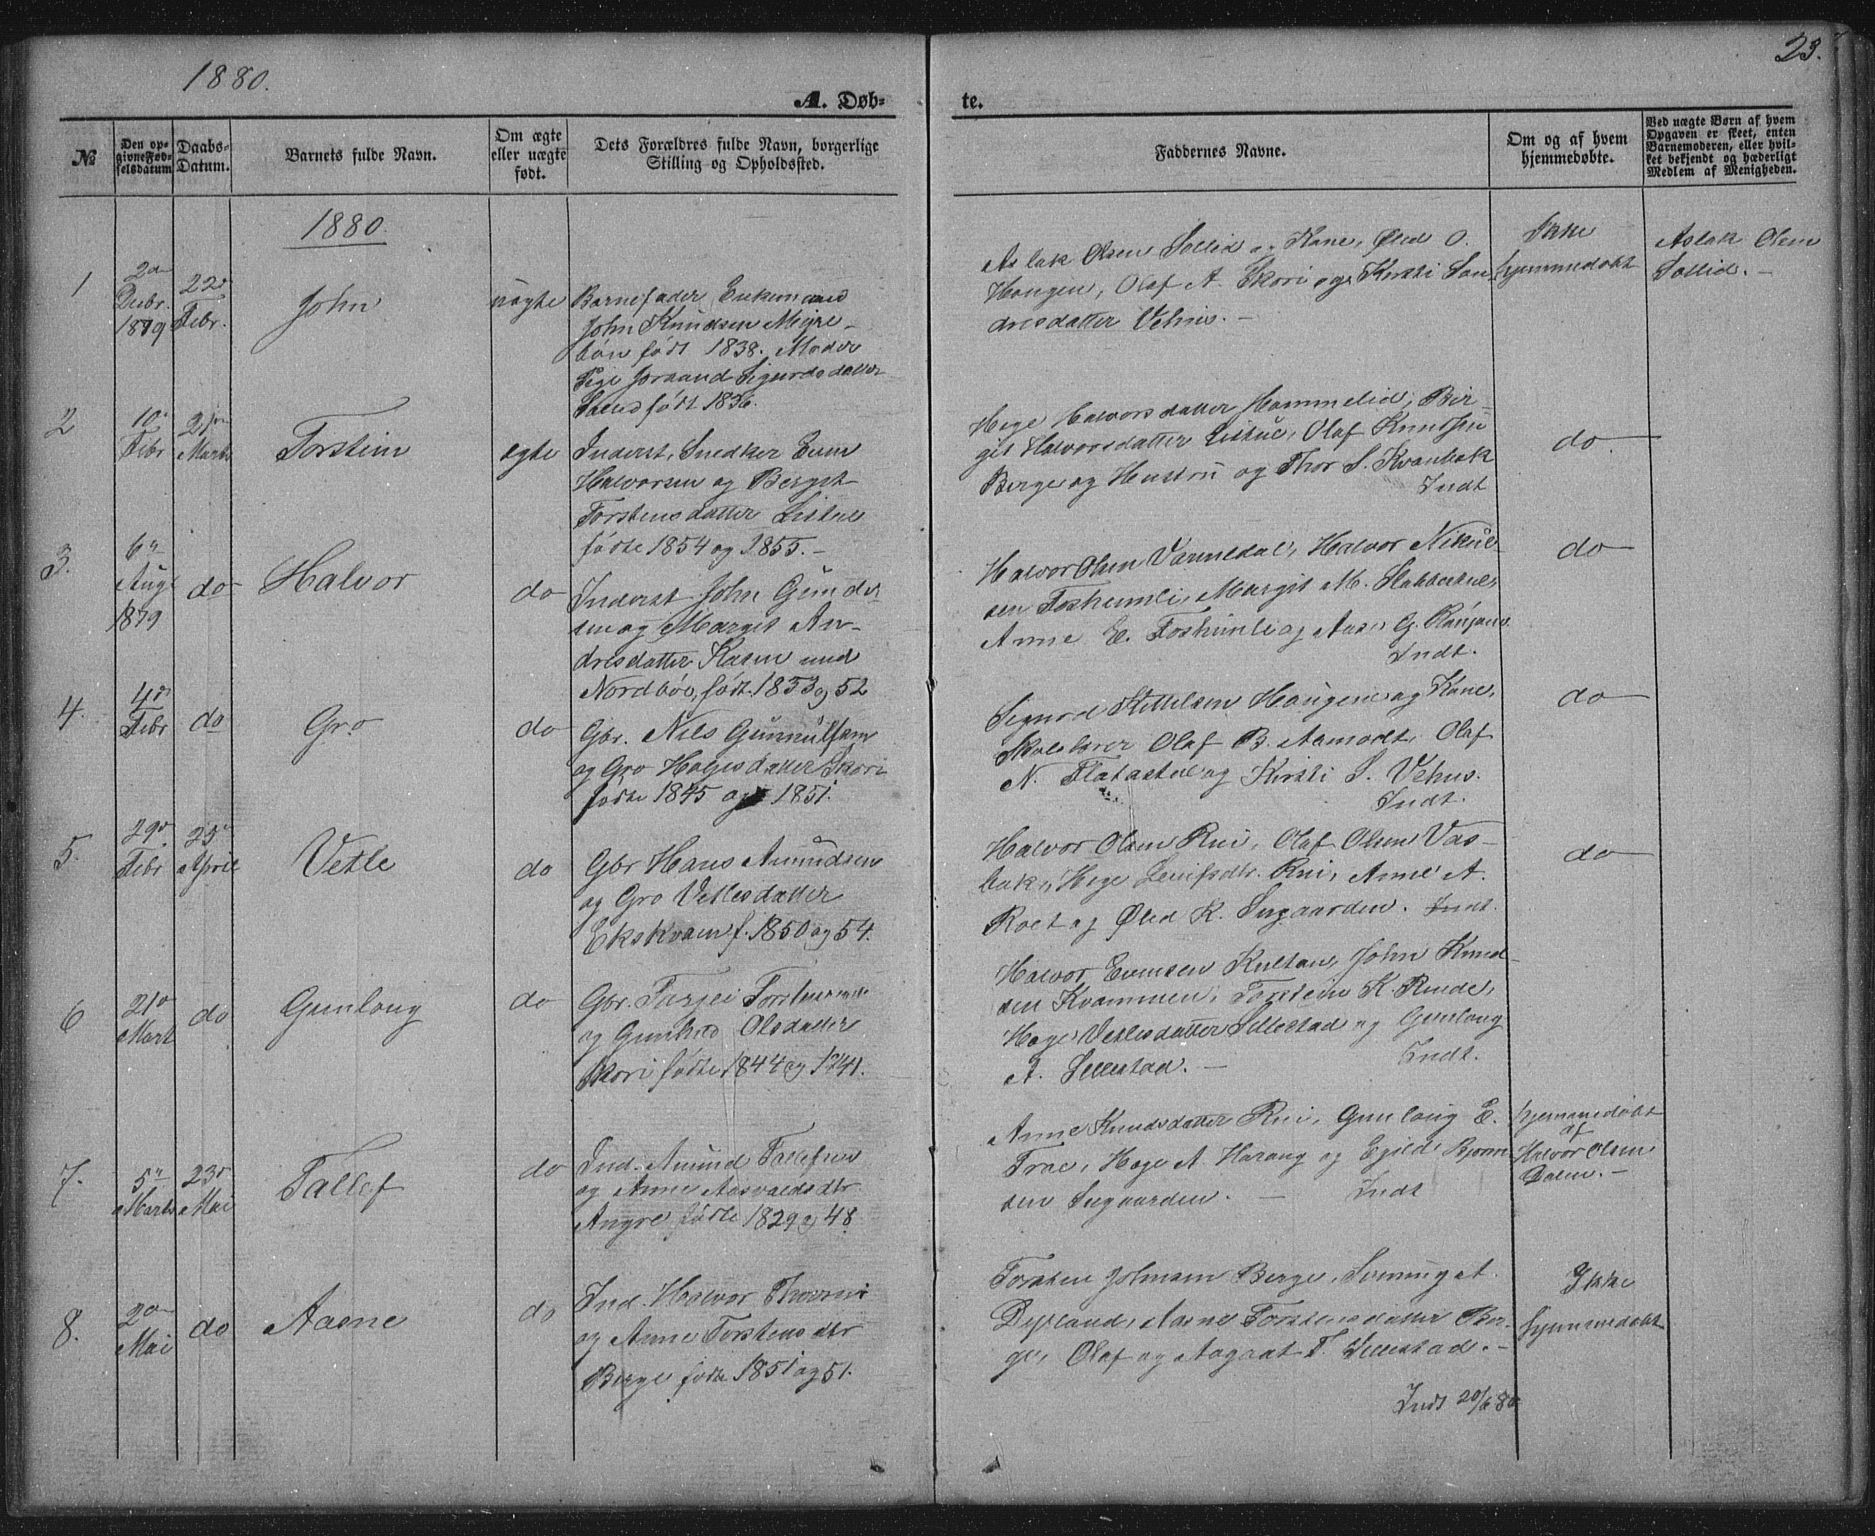 1880.
23.
A. Døb-
te.
№
Den op-
givne Fød-
selsdatum
Daabs-
Datum.
Barnets fulde Navn.
Om ægte
eller uægte
født.
Dets Forældres fulde Navn, borgerlige
Stilling og Opholdssted.
Faddernes Navne.
Om og af hvem
hjemmedøbte.
Ved uægte Børn af hvem
Opgaven er skeet, enten
Barnemoderen, eller hvil-
ket bekjendt og hæderligt
Medlem af Menigheden.
1880.
1
2den
Debr.
1879
22de
Febr.
John
uægte
Barnefader Enkemand
John Knudsen
født 1838. Moder
Pige Joraand Sigurdsdatter
født 1836.
Aslak Olsen Sollid og Kone, Øled O.
Haugen, Olaf A. Skori og Kirsti Son
dresdatter Vehus. -
Ikke
hjemmedøbt
Aslak Olsen
Sollid. -
2
10de
Febr
21de
Marts
Torstein
ægte
Inderst, Snedker Even
Halvorsen og Bergit
Torstensdatter Listul
fødte 1854 og 1855. -
Hege Halvorsdatter Hommelid, Bir-
git Halvorsdatter Listul, Olaf Knudsen
Berge og Hustru og Thor S. Kvambæk
Indt
do
3.
6te
Augt
1879
do
Halvor
do
Inderst John Gunder
sen og Margit An-
dresdatter Kasin und
Nordbøe, født 1853 og 52
Halvor Olsen Vanndal, Halvor Nikul-
sen Foshimli, Margit M. Stabbestul,
Anne E. Foshimli og Aase G.
Indt.
do
4.
4de
Febr
do
Gro
do
Gbr. Nils Gunnulfsen
og Gro Halvorsdatter Skori
fødte 1845 og 1851.
Sigurd Kittilsen Haugen og Kone,
Skolelærer Olaf B. Aamodt, Olaf
N. Flatastul og Kirsti S. Vehus.
Indt.
do
5.
29de
Febr
25de
April
Vetle
do
Gbr Hans Amundsen
og Gro Vetlesdatter
Ekskvam f. 1850 og 54.
Halvor Olsen Rui, Olaf Olsen Vas-
bæk, Hege Leifsdtr. Rui, Anne A.
Roet og Øled K. Sugaarden. Indt.
do
6
21de
Mart
do
Gunlaug
do
Gbr. Tarjei Torstensen
og Gunhild Olsdatter
Skori fødte 1844 og 1841.
Halvor Evensen Kultan, John Knud-
sen Kvammen, Torstein K. Rinde,
Hæge Vetlesdatter Sillestad og Gunlaug
A. Sillestad. -
Indt.
7.
5te
Marts
23de
Mai
Tallef
do
Ind. Amund Tallefsen
og Anne Aasvaldsdtr
Angre fødte 1829 og 48.
Anne Knudsdatter Rui, Gunlaug E.
Træe, Hæge A. Haraug og Egild Bjørn
sen Sugaarden. -
Indt
hjemmedøbt
af
Halvor Olsen
Dalen. -
8.
2den
Mai
do
Aasne
do
Ind. Halvor
og Anne Torstensdtr
Berge fødte 1851 og 51.
Torsten Johnsen Berge, Svenning A.
Dysland, Aasne Torstensdatter Ber-
ge, Olaf og Aagaat T. Sillestad. -
Indt 20/6 80
Ikke
hjemmedøbt